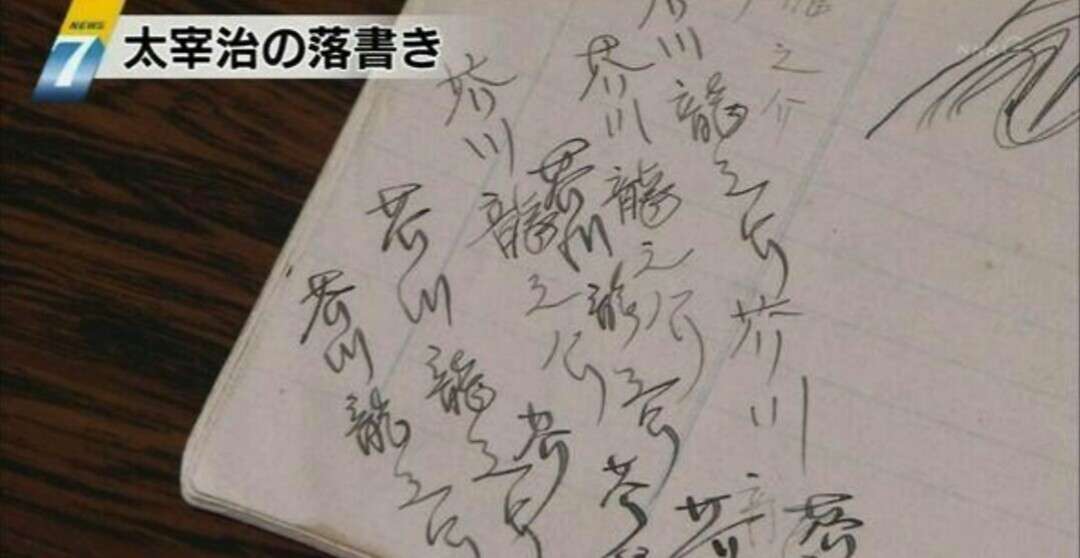 NEWS
7
太宰治の落書き
NHK G
之介
川龍之介
芥川
芥川龍之介
芥川龍之介
芥川龍之介
芥川龍之介
芥川龍之介
芥
芥
芥
龍
芥